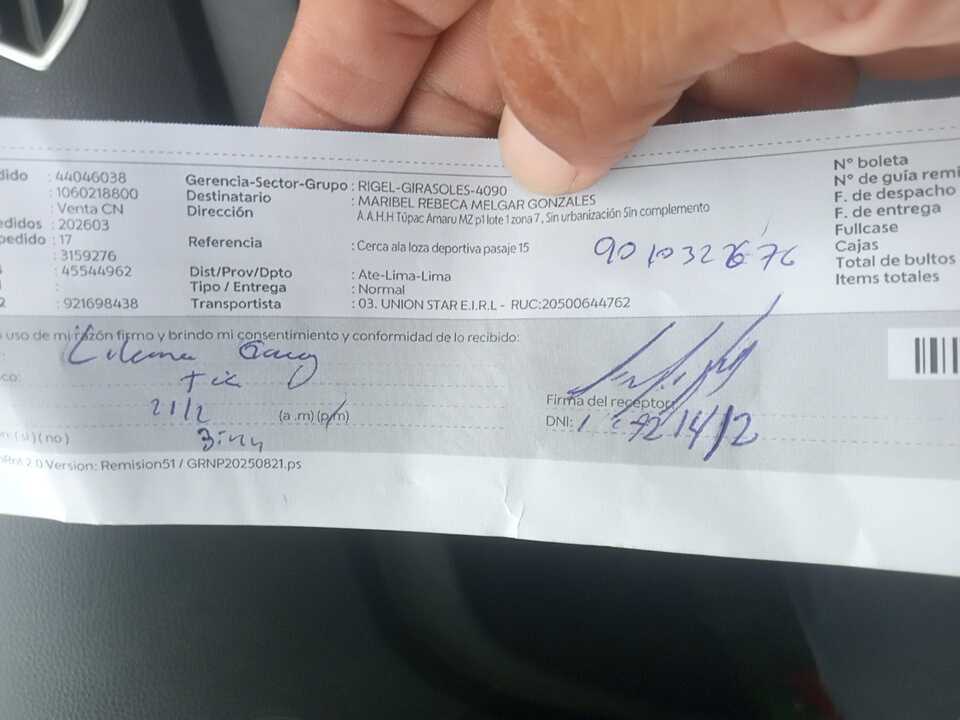 dido : 44046038
: 1060218800
: Venta CN
edidos : 202603
pedido : 17
: 3159276
: 45544962
:
2 : 921698438
Gerencia-Sector-Grupo : RIGEL-GIRASOLES-4090
Destinatario : MARIBEL REBECA MELGAR GONZALES
Dirección : A.A.H.H Túpac Amaru MZ p1 lote 1 zona 7, Sin urbanización Sin complemento
Referencia : Cerca ala loza deportiva pasaje 15
Dist/Prov/Dpto : Ate-Lima-Lima
Tipo / Entrega : Normal
Transportista : 03. UNION STAR E.I.R.L - RUC:20500644762
N° boleta
N° de guía remi
F. de despacho
F. de entrega
Fullcase
Cajas
Total de bultos
Items totales
uso de mi razón firmo y brindo mi consentimiento y conformidad de lo recibido:
co:
21/2 (a .m) (p/m)
( si ) ( no )
Firma del receptor:
DNI:
2.0 Version: Remision51 / GRNP20250821.ps